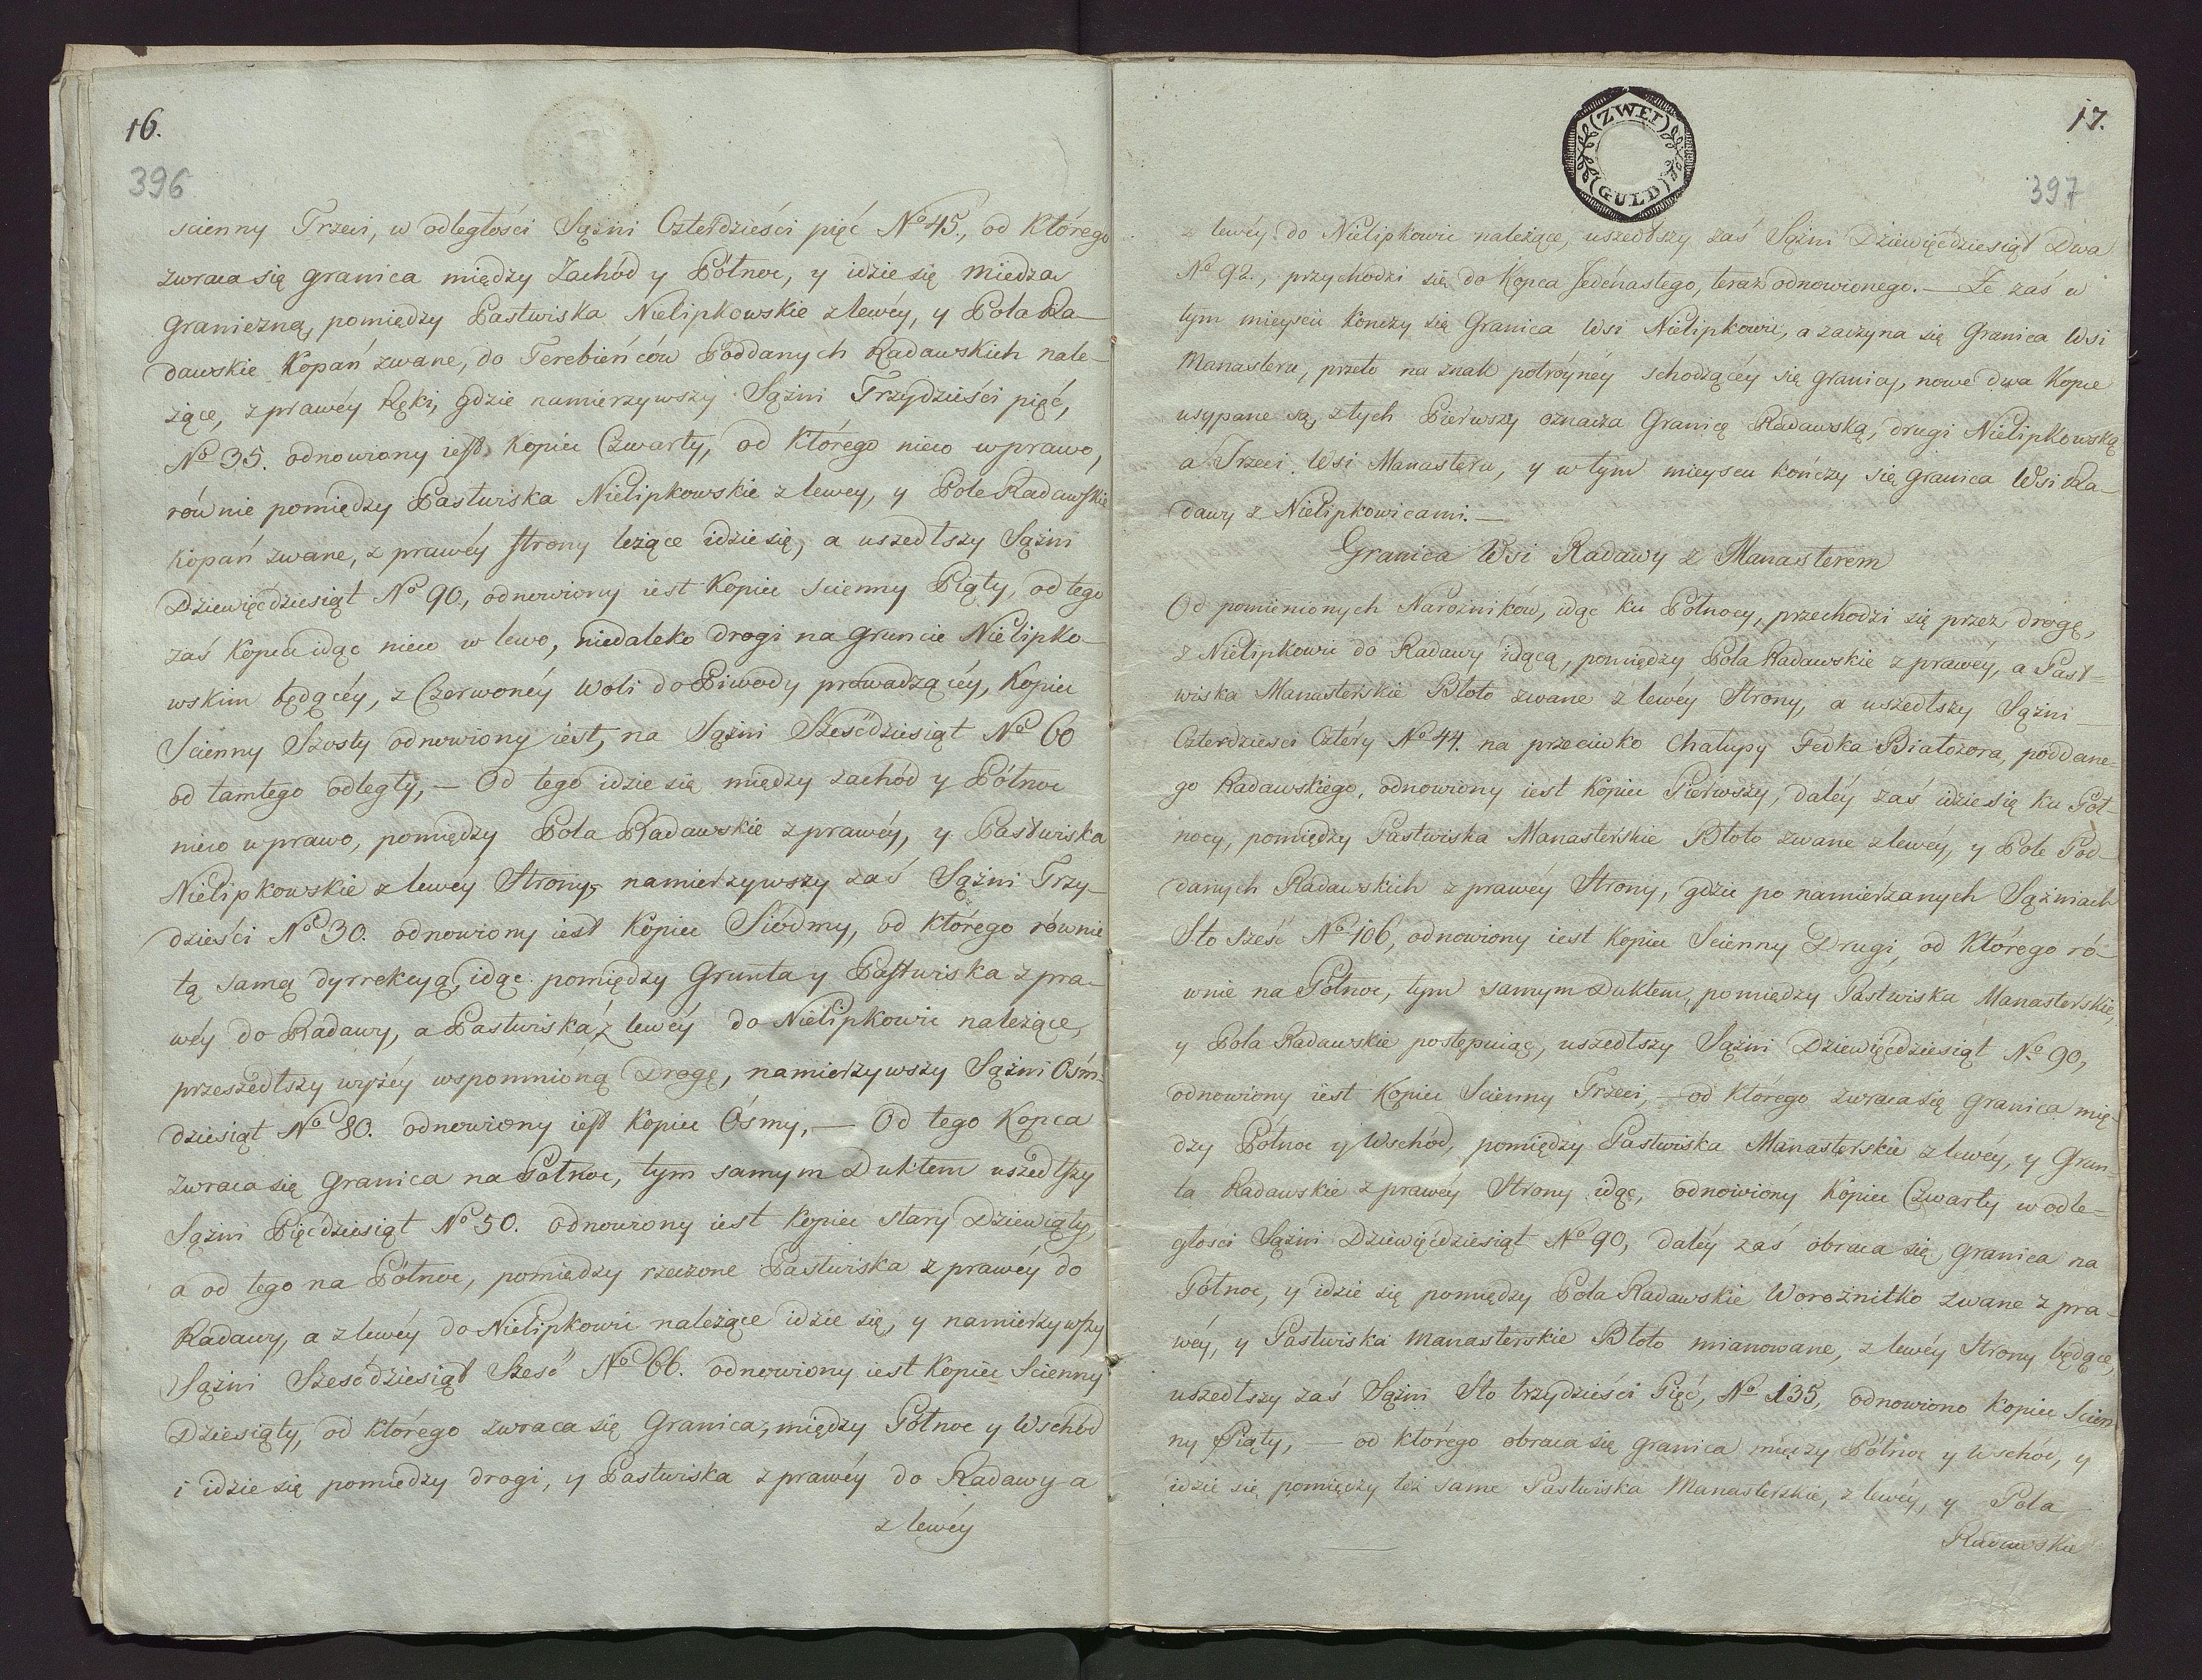 16.
396
scienny Trzeci, w odległości Sążni Czterdzieści pięć No 45., od którego
zwraca się granica między Zachód y Północ, y idzie się miedzą
graniczną, pomiędzy Pastwiska Nielipkowskie z lewéy, y Pola Ra-
dawskie Kopań zwane, do Terebieńców Poddanych Radawskich nale-
żące, z prawéy Ręki, gdzie namierzywszy Sążni Trzydzieści pięć,
No 35. odnowiony iest Kopiec Czwarty, od którego nieco w prawo,
równie pomiędzy Pastwiska Nielipkowskie z lewey, y Pole Radawskie
Kopań zwane, z prawéy strony leżące idzie się, a uszedłszy Sążni
Dziewięćdziesiąt No 90., odnowiony iest Kopiec scienny Piąty, od tego
zaś Kopca idąc nieco w lewo, niedaleko drogi na gruncie Nielipko-
wskim będącéy, z Czerwonéy Woli do Piwody prowadzącéy, Kopiec
Scienny Szosty odnowiony iest, na Sążni Sześćdziesiąt No 60
od tamtego odległy, — Od tego idzie się między zachód y Północ
nieco w prawo, pomiędzy Pola Radawskie z prawéy, y Pastwiska
Nielipkowskie z lewéy Strony, namierzywszy zaś Sążni Trzy-
dzieści No 30. odnowiony iest Kopiec Siódmy, od którego równie
tą samą dyrrekcyą, idąc pomiędzy Grunta y Pastwiska z pra-
wéy do Radawy, a Pastwiska z lewéy do Nielipkowic należące,
przeszedłszy wyżéy wspomnioną Drogę, namierzywszy Sążni Ośm-
dziesiąt No 80. odnowiony iest Kopiec Ósmy, — Od tego Kopca
zwraca się granica na Północ, tym samym Duktem uszedłszy
Sążni Pięćdziesiąt No 50. odnowiony iest Kopiec stary Dziewiąty,
a od tego na Północ, pomiędzy rzeczone Pastwiska z prawéy do
Radawy, a z lewéy do Nielipkowic należące idzie się, y namierzywszy
Sążni Sześćdziesiąt Sześć No 66. odnowiony iest Kopiec Scienny
Dziesiąty, od którego zwraca się Granica, między Północ y Wschód
i idzie się pomiedzy drogi, y Pastwiska z prawéy do Radawy a
z lewéy
ZWEI
GULD
17.
397
z lewéy do Nielipkowic należące, uszedłszy zaś Sążni Dziewięćdziesiąt Dwa
No 92., przychodzi się do Kopca Jedénastego, teraz odnowionego. — Ze zaś w
tym mieyscu kończy się Granica Wsi Nielipkowic, a zaczyna się Granica Wsi
Manasteru, przeto na znak potróynéy schodzącéy się granicy, nowe dwa Kopce
usypane są, z tych Pierwszy oznacza Granicę Radawską, drugi Nielipkowską
a Trzeci Wsi Manasteru, y w tym mieyscu kończy się granica Wsi Ra-
dawy z Nielipkowicami. —
Granica Wsi Radawy z Manasterem
Od pomienionych Narożników, idąc ku Północy, przechodzi się przez drogę,
z Nielipkowic do Radawy idącą, pomiędzy Pola Radawskie z prawéy, a Past-
wiska Manasterskie Błoto zwane z lewéy Strony, a uszedłszy Sążni
Czterdziesci Cztéry No 44. na przeciwko Chałupy Fedka Białozora, poddane-
go Radawskiego, odnowiony iest Kopiec Piérwszy, daléy zaś idzie się ku Pół-
nocy, pomiędzy Pastwiska Manasterskie Błoto zwane z lewéy, y Pole Pod-
danych Radawskich z prawéy Strony, gdzie po namierzanych Sążniach
Sto sześć No 106, odnowiony iest Kopiec Scienny Drugi, od którego ró-
wnie na Północ, tym samym Duktem, pomiędzy Pastwiska Manasterskie,
y Pola Radawskie postępuiąc, uszedłszy Sążni Dziewięćdziesiąt No 90,
odnowiony iest Kopiec Scienny Trzeci, — od którego zwraca się granica mię-
dzy Północ y Wschód, pomiędzy Pastwiska Manasterskie z lewéy, y Grun-
ta Radawskie z prawéy Strony idąc, odnowiony Kopiec Czwarty w odle-
głości Sążni Dziewięćdziesiąt No 90, daléy zaś obraca się granica na
Północ, y idzie się pomiędzy Pola Radawskie Worożnitko zwane z pra-
wéy, y Pastwiska Manasterskie Błoto mianowane, z lewéy Strony będące,
uszedłszy zaś Sążni Sto trzydzieści Pięć, No 135, odnowiono Kopiec Scien-
ny Piąty, — od którego obraca się granica między Północ y Wschód, y
idzie się pomiędzy też same Pastwiska Manasterskie, z lewéy, y Pola
Radawskie